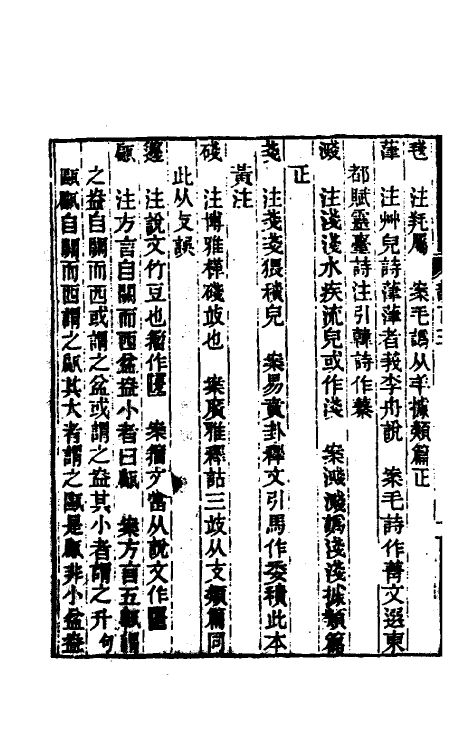 毧　注毦屬　案毛譌从手據類篇正
蓱　注艸皃詩蓱蓱者莪李舟說　案毛詩作菁文選東
都賦靈臺詩注引韓詩作蓁
濺　注淺淺水疾流皃或作淺　案濺濺譌淺淺據類篇
正
戔　注戔戔猥積皃　案易賁卦釋文引馬作委積此本
黃注
碊　注博雅襌碊攱也　案廣雅釋詁三攱从支類篇同
此从攴誤
籩　注說文竹豆也籀作匶　案籀文當从說文作匶
甂　注方言自關而西盆盎小者曰甂　案方言五甂謂
之盎自關而西或謂之盆或謂之盎其小者謂之升句
甌甂自關而西謂之甂其大者謂之甌是甂非小盆盎